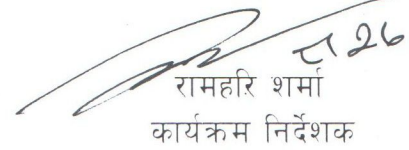 रामहरि शर्मा
कार्यक्रम निर्देशक